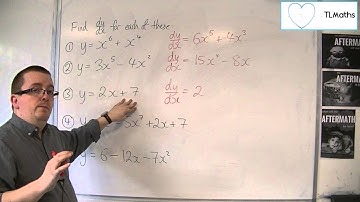 TLMaths
Find dy/dx for each of these
① y = x⁶ + x⁴ dy/dx = 6x⁵ + 4x³
② y = 3x⁵ - 4x² dy/dx = 15x⁴ - 8x
③ y = 2x + 7 dy/dx = 2
④ y x⁷ + 2x + 7
y = 6 - 12x - 7x²
AFTERMATH
AFTERMATH
AFTERMATH